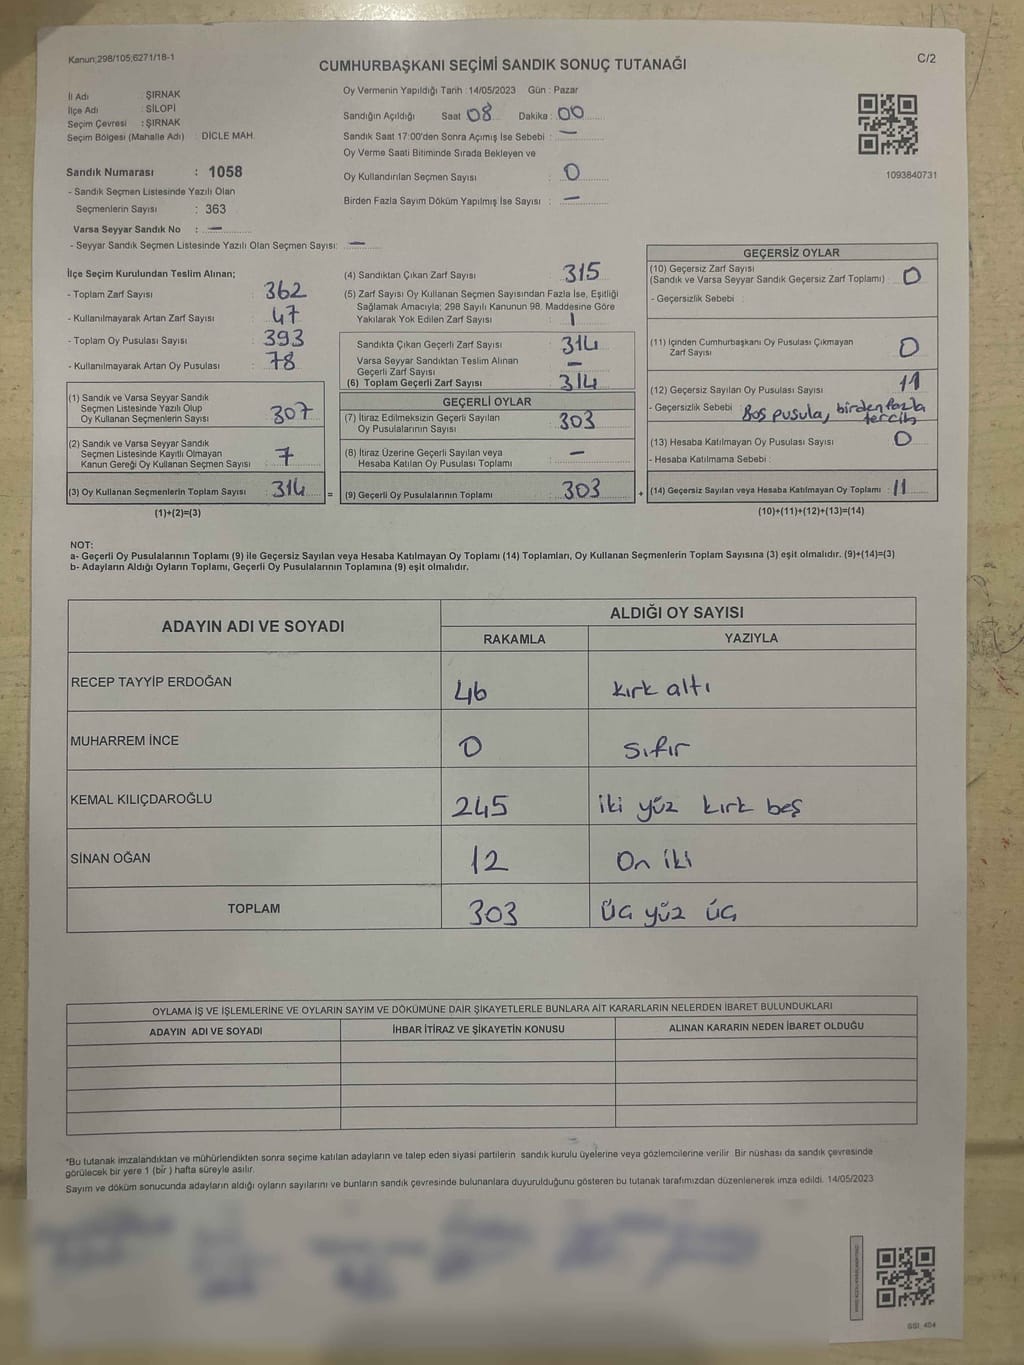 Kanun;298/105;6271/18-1
CUMHURBAŞKANI SEÇİMİ SANDIK SONUÇ TUTANAĞI
C/2
İl Adı : ŞIRNAK
İlçe Adı : SİLOPİ
Seçim Çevresi : ŞIRNAK
Seçim Bölgesi (Mahalle Adı) : DİCLE MAH.
Sandık Numarası : 1058
- Sandık Seçmen Listesinde Yazılı Olan
Seçmenlerin Sayısı : 363
Varsa Seyyar Sandık No : —
- Seyyar Sandık Seçmen Listesinde Yazılı Olan Seçmen Sayısı: —
Oy Vermenin Yapıldığı Tarih :14/05/2023 Gün : Pazar
Sandığın Açıldığı Saat 08 Dakika : 00
Sandık Saat 17:00'den Sonra Açımış İse Sebebi : —
Oy Verme Saati Bitiminde Sırada Bekleyen ve
Oy Kullandırılan Seçmen Sayısı : 0
Birden Fazla Sayım Döküm Yapılmış İse Sayısı : —
1093840731
İlçe Seçim Kurulundan Teslim Alınan;
- Toplam Zarf Sayısı : 362
- Kullanılmayarak Artan Zarf Sayısı : 47
- Toplam Oy Pusulası Sayısı : 393
- Kullanılmayarak Artan Oy Pusulası : 78
(1) Sandık ve Varsa Seyyar Sandık
Seçmen Listesinde Yazılı Olup
Oy Kullanan Seçmenlerin Sayısı : 307
(2) Sandık ve Varsa Seyyar Sandık
Seçmen Listesinde Kayıtlı Olmayan
Kanun Gereği Oy Kullanan Seçmen Sayısı : 7
(3) Oy Kullanan Seçmenlerin Toplam Sayısı : 314 =
(1)+(2)=(3)
(4) Sandıktan Çıkan Zarf Sayısı : 315
(5) Zarf Sayısı Oy Kullanan Seçmen Sayısından Fazla İse, Eşitliği
Sağlamak Amacıyla; 298 Sayılı Kanunun 98. Maddesine Göre
Yakılarak Yok Edilen Zarf Sayısı : 1
Sandıkta Çıkan Geçerli Zarf Sayısı : 314
Varsa Seyyar Sandıktan Teslim Alınan
Geçerli Zarf Sayısı : —
(6) Toplam Geçerli Zarf Sayısı : 314
GEÇERLİ OYLAR
(7) İtiraz Edilmeksizin Geçerli Sayılan
Oy Pusulalarının Sayısı : 303
(8) İtiraz Üzerine Geçerli Sayılan veya
Hesaba Katılan Oy Pusulası Toplamı : —
(9) Geçerli Oy Pusulalarının Toplamı : 303 +
GEÇERSİZ OYLAR
(10) Geçersiz Zarf Sayısı
(Sandık ve Varsa Seyyar Sandık Geçersiz Zarf Toplamı) : 0
- Geçersizlik Sebebi :
(11) İçinden Cumhurbaşkanı Oy Pusulası Çıkmayan
Zarf Sayısı : 0
(12) Geçersiz Sayılan Oy Pusulası Sayısı : 11
- Geçersizlik Sebebi : Boş pusula, birden fazla
tercih
(13) Hesaba Katılmayan Oy Pusulası Sayısı : 0
- Hesaba Katılmama Sebebi :
(14) Geçersiz Sayılan veya Hesaba Katılmayan Oy Toplamı : 11
(10)+(11)+(12)+(13)=(14)
NOT:
a- Geçerli Oy Pusulalarının Toplamı (9) ile Geçersiz Sayılan veya Hesaba Katılmayan Oy Toplamı (14) Toplamları, Oy Kullanan Seçmenlerin Toplam Sayısına (3) eşit olmalıdır. (9)+(14)=(3)
b- Adayların Aldığı Oyların Toplamı, Geçerli Oy Pusulalarının Toplamına (9) eşit olmalıdır.
ADAYIN ADI VE SOYADI
ALDIĞI OY SAYISI
RAKAMLA YAZIYLA
RECEP TAYYİP ERDOĞAN 46 kırk altı
MUHARREM İNCE 0 sıfır
KEMAL KILIÇDAROĞLU 245 iki yüz kırk beş
SİNAN OĞAN 12 On iki
TOPLAM 303 Üç yüz üç
OYLAMA İŞ VE İŞLEMLERİNE VE OYLARIN SAYIM VE DÖKÜMÜNE DAİR ŞİKAYETLERLE BUNLARA AİT KARARLARIN NELERDEN İBARET BULUNDUKLARI
ADAYIN ADI VE SOYADI İHBAR İTİRAZ VE ŞİKAYETİN KONUSU ALINAN KARARIN NEDEN İBARET OLDUĞU
*Bu tutanak imzalandıktan ve mühürlendikten sonra seçime katılan adayların ve talep eden siyasi partilerin sandık kurulu üyelerine veya gözlemcilerine verilir. Bir nüshası da sandık çevresinde
görülecek bir yere 1 (bir ) hafta süreyle asılır.
Sayım ve döküm sonucunda adayların aldığı oyların sayılarını ve bunların sandık çevresinde bulunanlara duyurulduğunu gösteren bu tutanak tarafımızdan düzenlenerek imza edildi. 14/05/2023